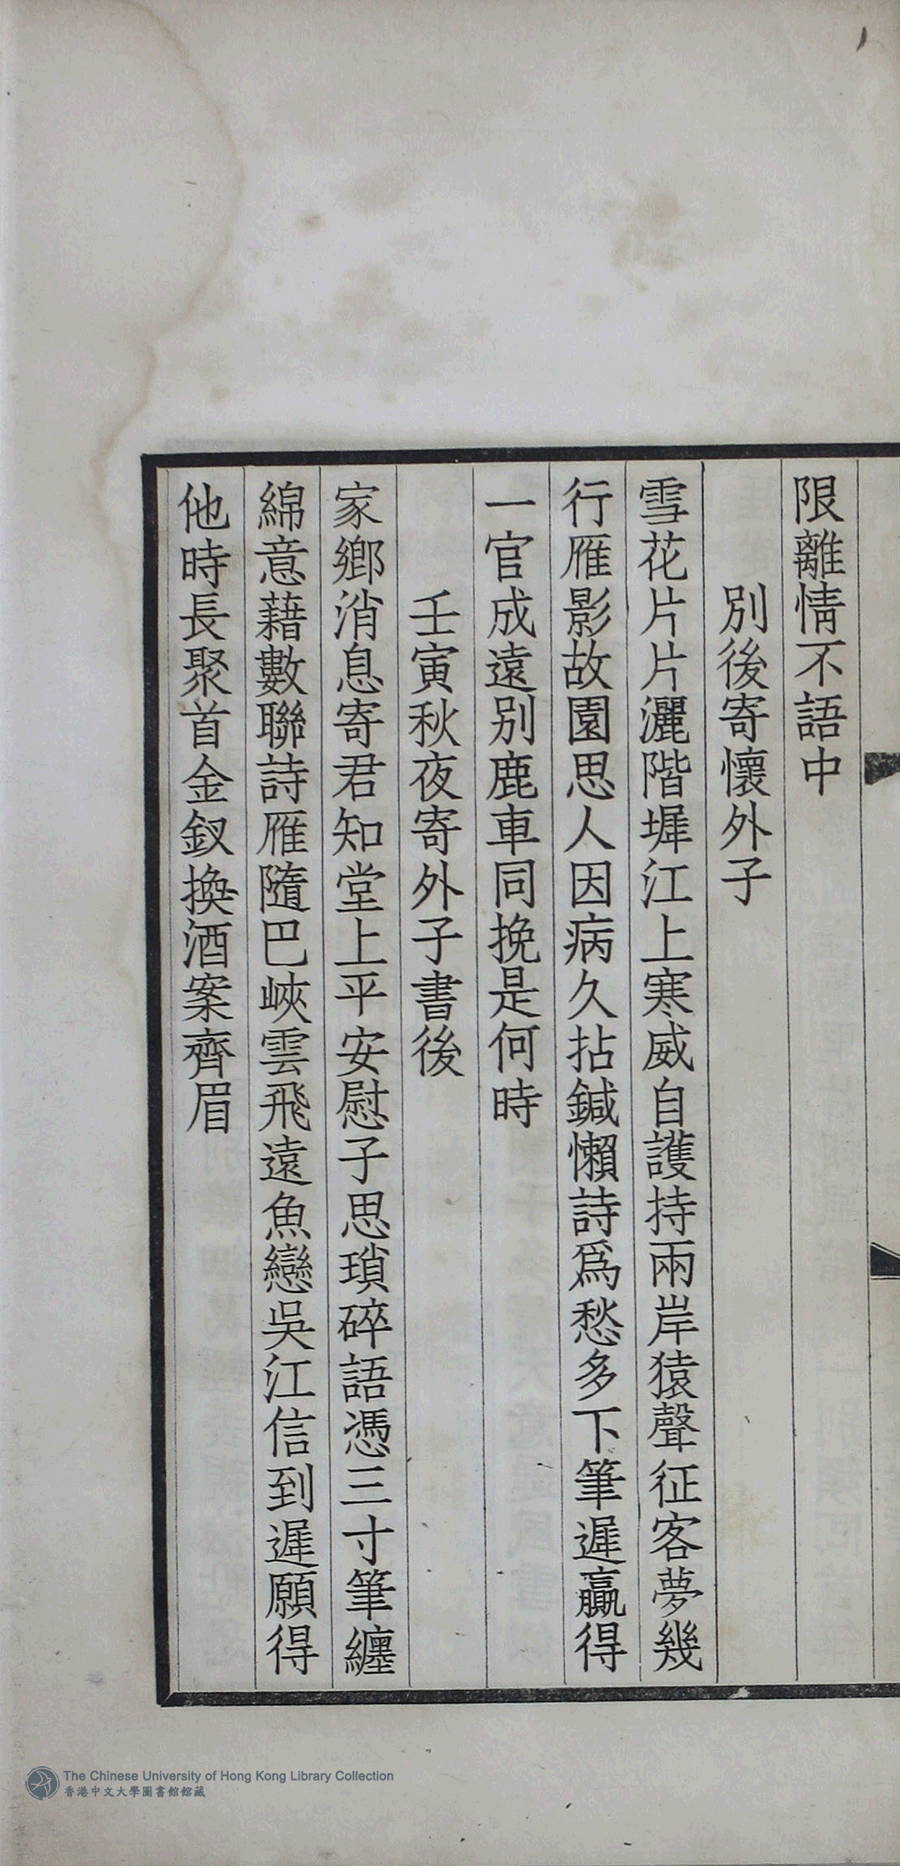 限離情不語中
別後寄懷外子
雪花片片灑階墀江上寒威自護持兩岸猿聲征客夢幾
行雁影故園思人因病久拈鍼懶詩為愁多下筆遲贏得
一官成遠別鹿車同挽是何時
壬寅秋夜寄外子書後
家鄉消息寄君知堂上平安慰子思瑣碎語憑三寸筆纏
綿意藉數聯詩雁隨巴峽雲飛遠魚戀吳江信到遲願得
他時長聚首金釵換酒案齊眉
The Chinese University of Hong Kong Library Collection
香港中文大學圖書館館藏